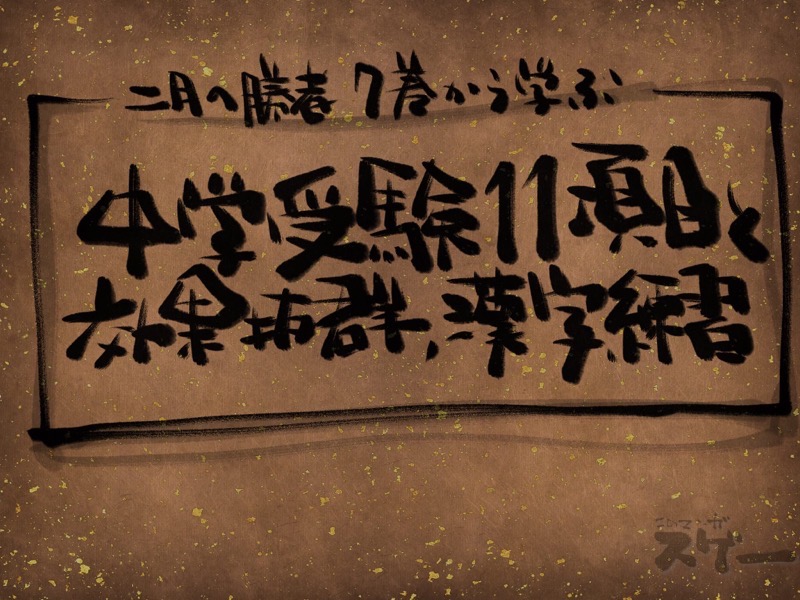 二月の勝者 7巻から学ぶ
中学受験11項目と
効果抜群、漢字練習
このマンガ
スゲー